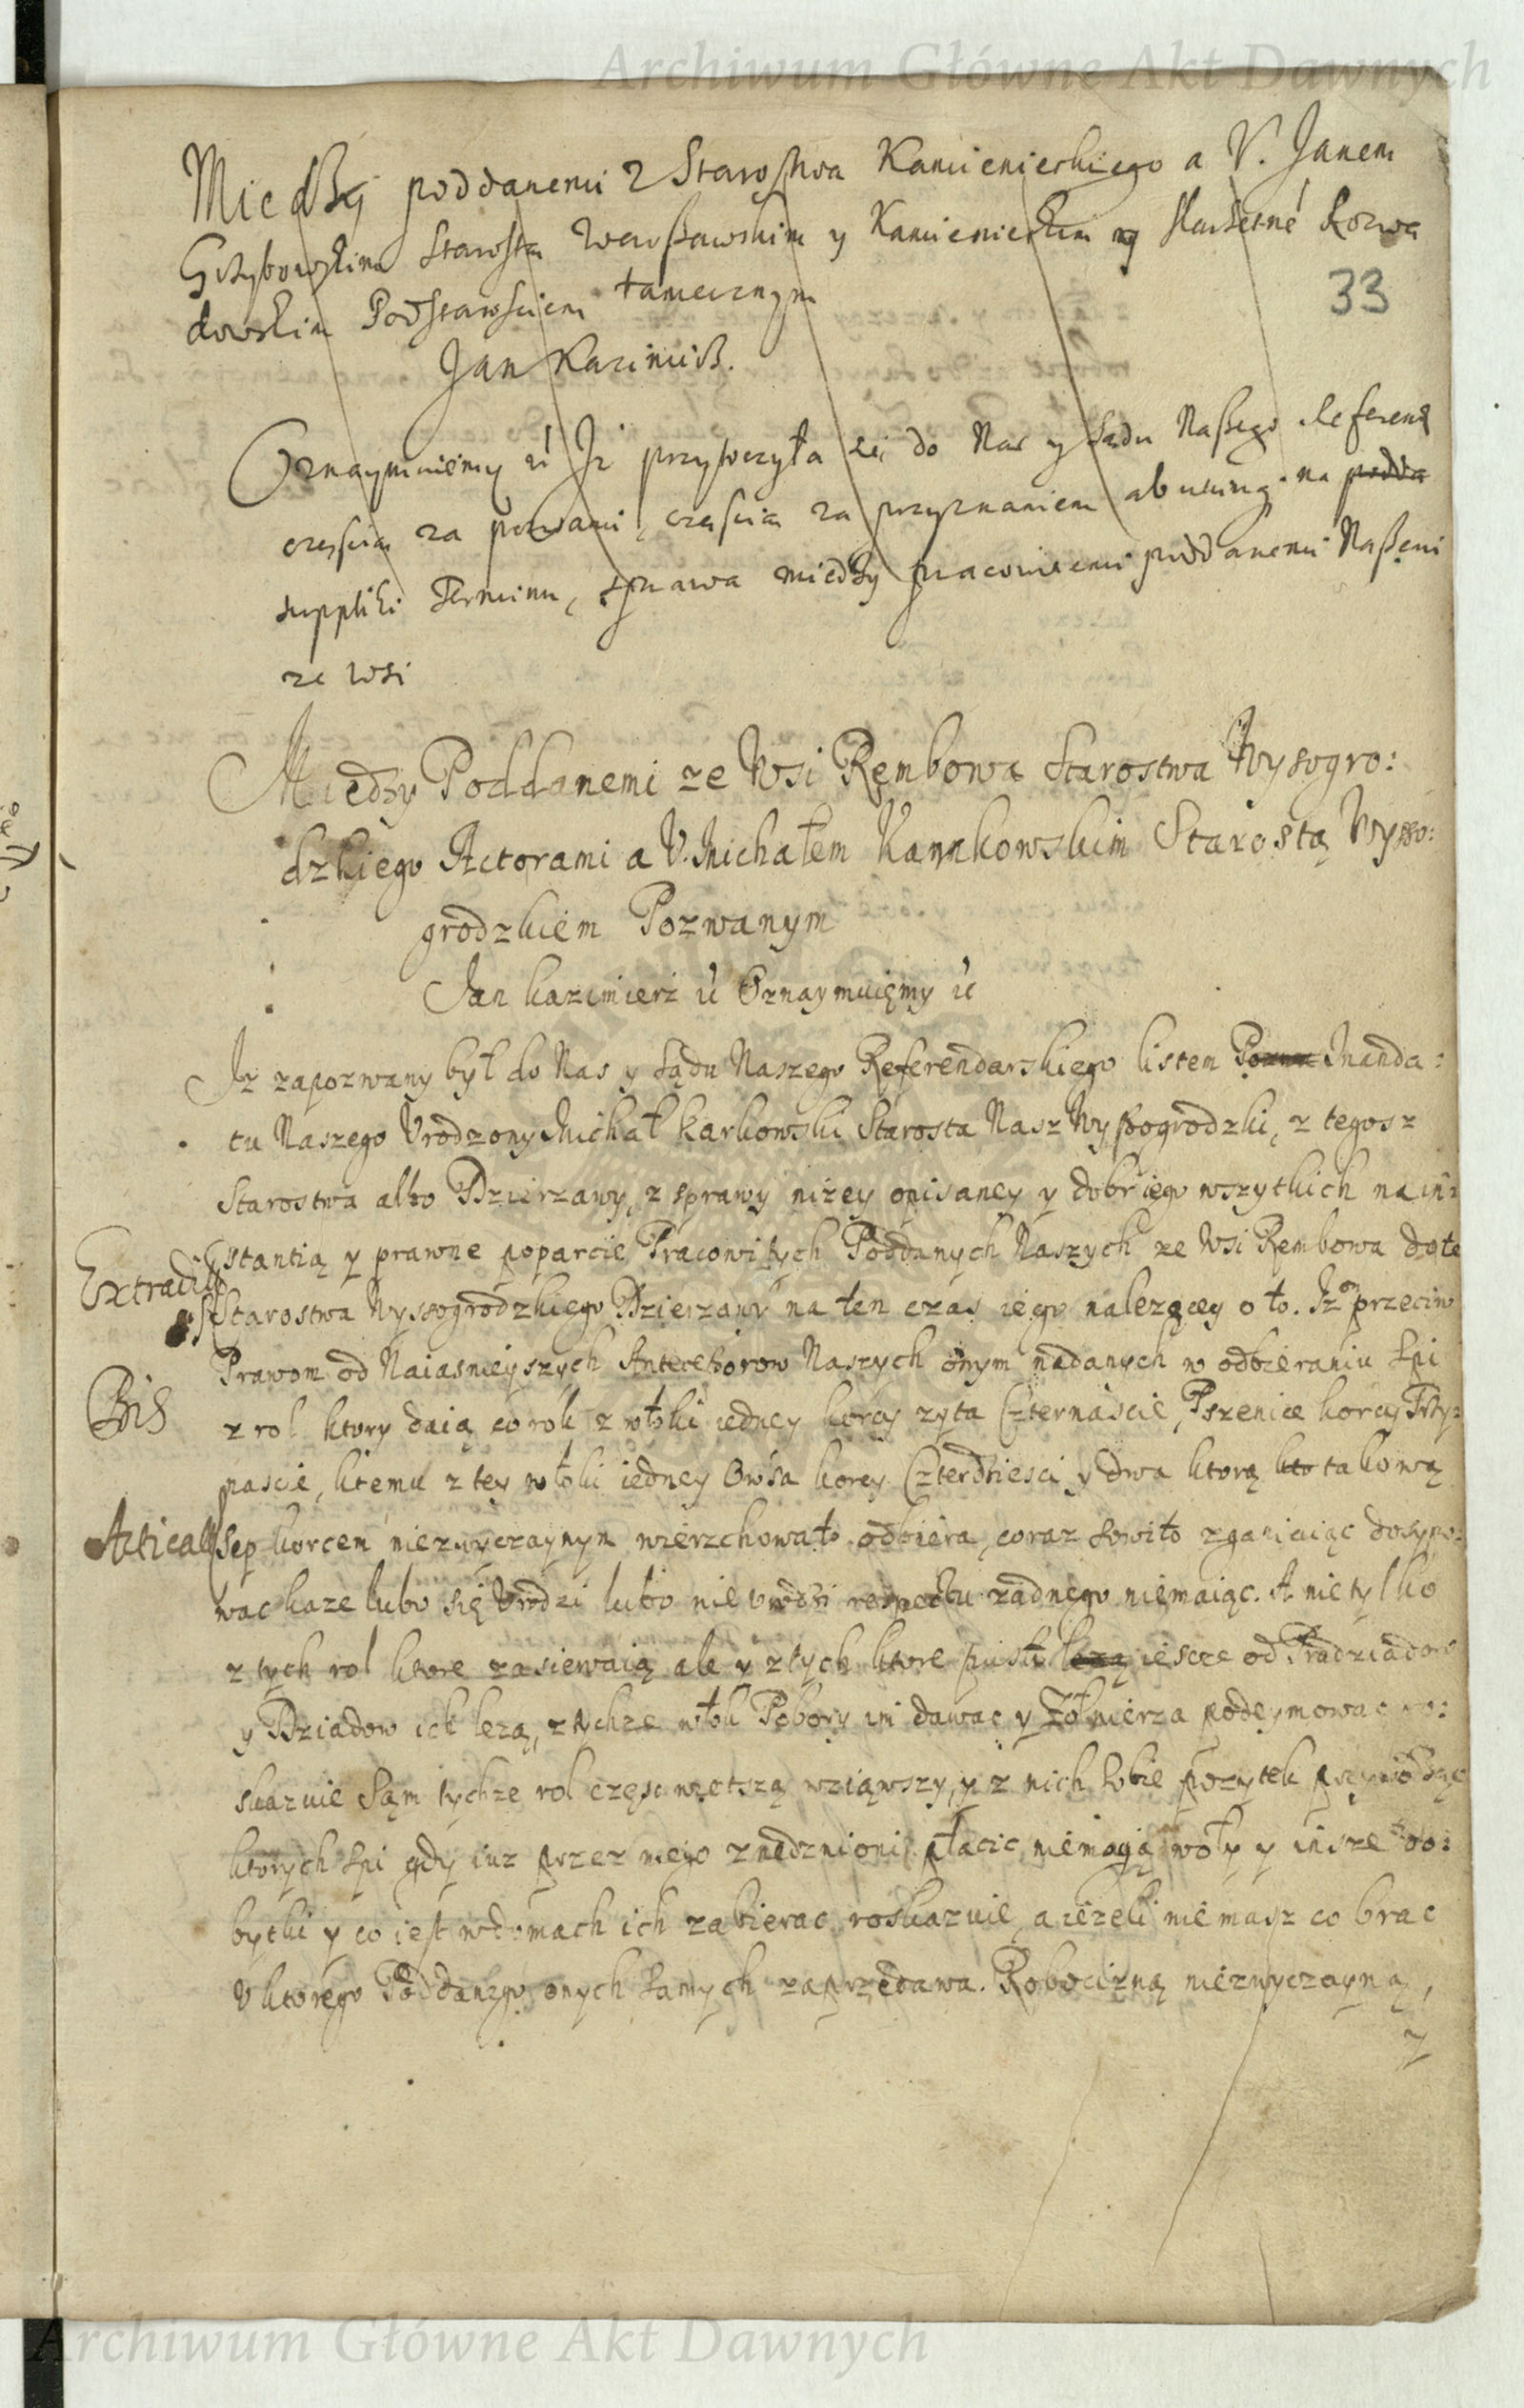 Archiwum Główne Akt Dawnych
Miedzy poddanemi z Starostwa Kamienieckiego a V. Janem
Grzybowskim Starostą Warszawskim y Kamienieckim
dowskim Podstarościem tamecznym
Jan Kazimierz.
33
Oznaymuiemy Iz przytoczyła sie do Nas y Sądu Naszego Referend
częscią za pozwami, częscią za przyznaniem na podda
suppliki Terminu, sprawa miedzy pracowitemi poddanemi Naszemi
ze wsi
Między Poddanemi ze Wsi Rębowa Starostwa Wysogro:
dzkiego Actorami a V. Michałem Karnkowskim Starostą Wyso:
grodzkiem Pozwanym
Jan Kazimierz Oznaymuięmy
Iz zapozwany był do Nas y Sądu Naszego Referendarskiego listem Manda:
tu Naszego Vrodzony Michał Karkowski Starosta Nasz Wyssogrodzki, z tegosz
Starostwa albo Dzierzawy, z sprawy nizey opisaney y dobr iego wszytkich na in:
stantią y prawne poparcie Pracowitych Poddanych Naszych ze Wsi Rembowa do te
Extradit
Starostwa Wyssogrodzkiego Dzierzawy na ten czas iego nalezącey o to. Iz on przeciw
Prawom od Naiasnieyszych Antecessorow Naszych onym nadanych w odbieraniu Spi
Bis
z rol ktory daią co rok z włoki iedney korcy zyta Czternascie, Pszenice korcy Trzy:
nascie, ktemu z tey włoki iedney Owsa korcy Czterdziesci y dwa ktorą takową
Sep korcem niezwyczaynym wierzchowato odbiera, coraz sowito zganiaiąc dosypo:
wac kaze lubo się Vrodzi lubo nie vrodzi respectu zadnego niemaiąc. A nie tylko
z tych rol ktore zasiewaią ale y z tych ktore pusto lezą iescze od Pradziadow
y Dziadow ich lezą, z tychze włok Pobory im dawac y Zołnierza podeymowac ro:
skazuie Sąm tychze rol częsc wietszą wziąwszy, y z nich sobie pozytek przywodząc
ktorych Spi gdy iuz przez niego znędznioni płacic niemogą woły y insze do:
bytki y co iest w domach ich zabierac roskazuie, a iezeli nie masz co brac
V ktorego Poddanego onych samych zaprzedawa. Robocizną niezwyczayną,
y
Archiwum Główne Akt Dawnych